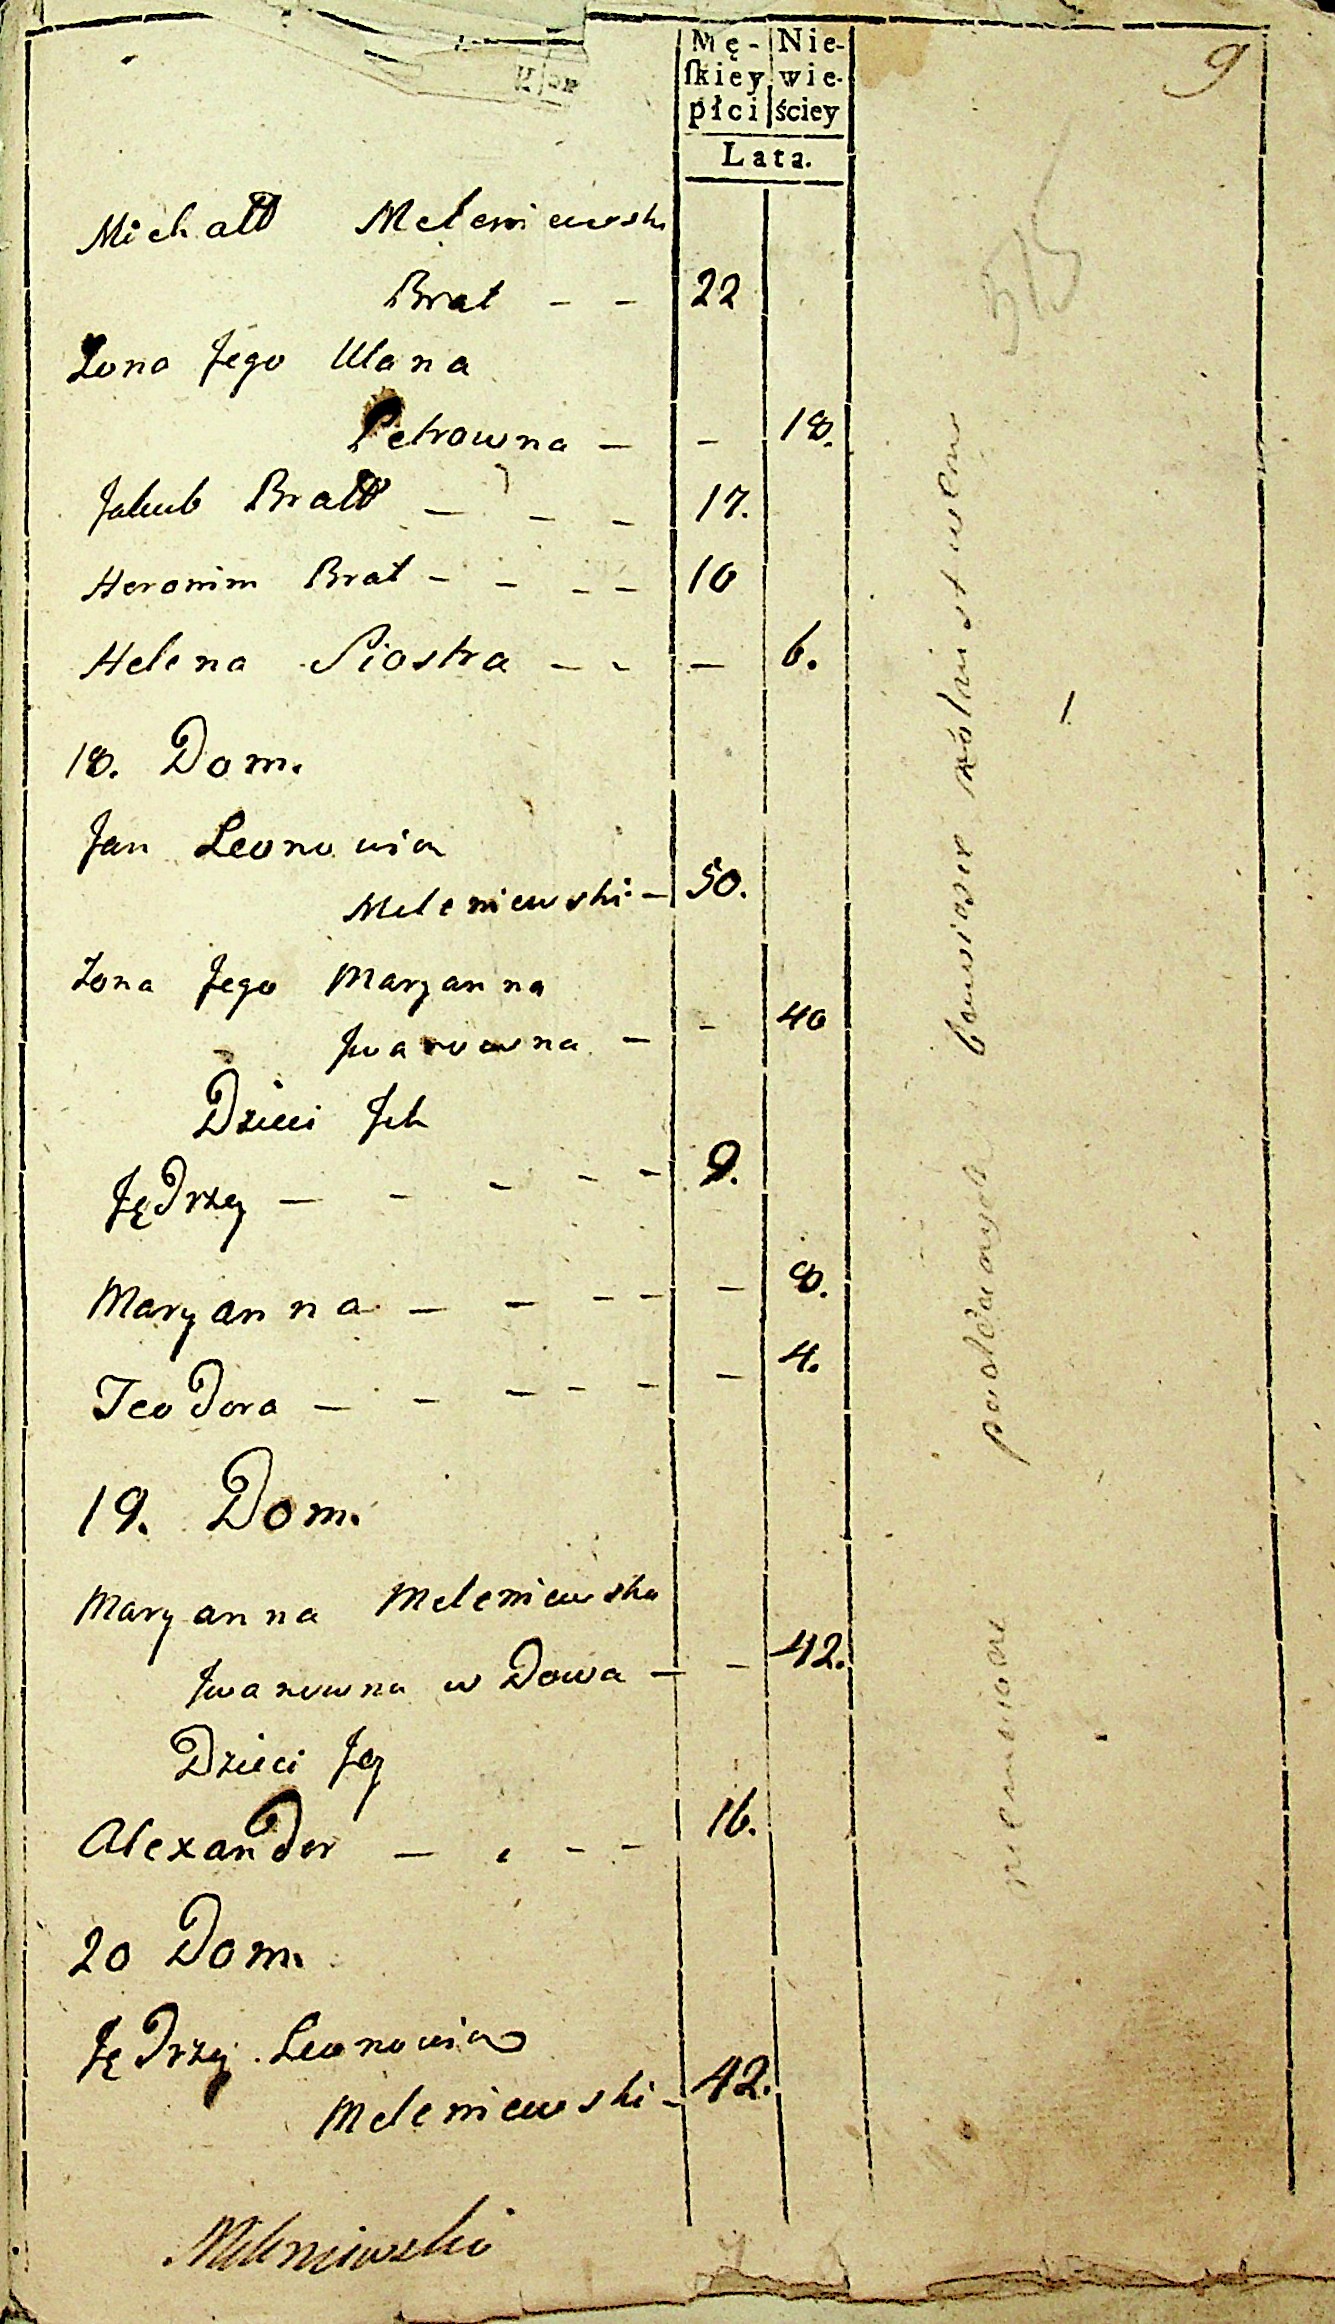 9
Mę- Nie-
ſkiey wie-
płci ściey
Lata.
Michałł Meleniewski
Brat - - 22
Zona Jego Ulana
Petrowna - - 18.
Jakub Bratt - - - 17.
Heronim Brat - - - - 10
Helena Siostra - - - 6.
18. Dom.
Jan Leonowicz
Meleniewski - 50.
Zona Jego Maryanna
Jwanowna - - 40
Dzieci Jch
Jędrzej - - - - - 9.
Maryanna - - - - - 8.
Teodora - - - - - - 4.
19. Dom.
Maryanna Meleniewska
Jwanowna wDowa - - 42.
Dzieci Jej
Alexander - - - - 16.
20 Dom.
Jędrzej Leonowicz
Meleniewski - 42.
Meleniewski
poddanych